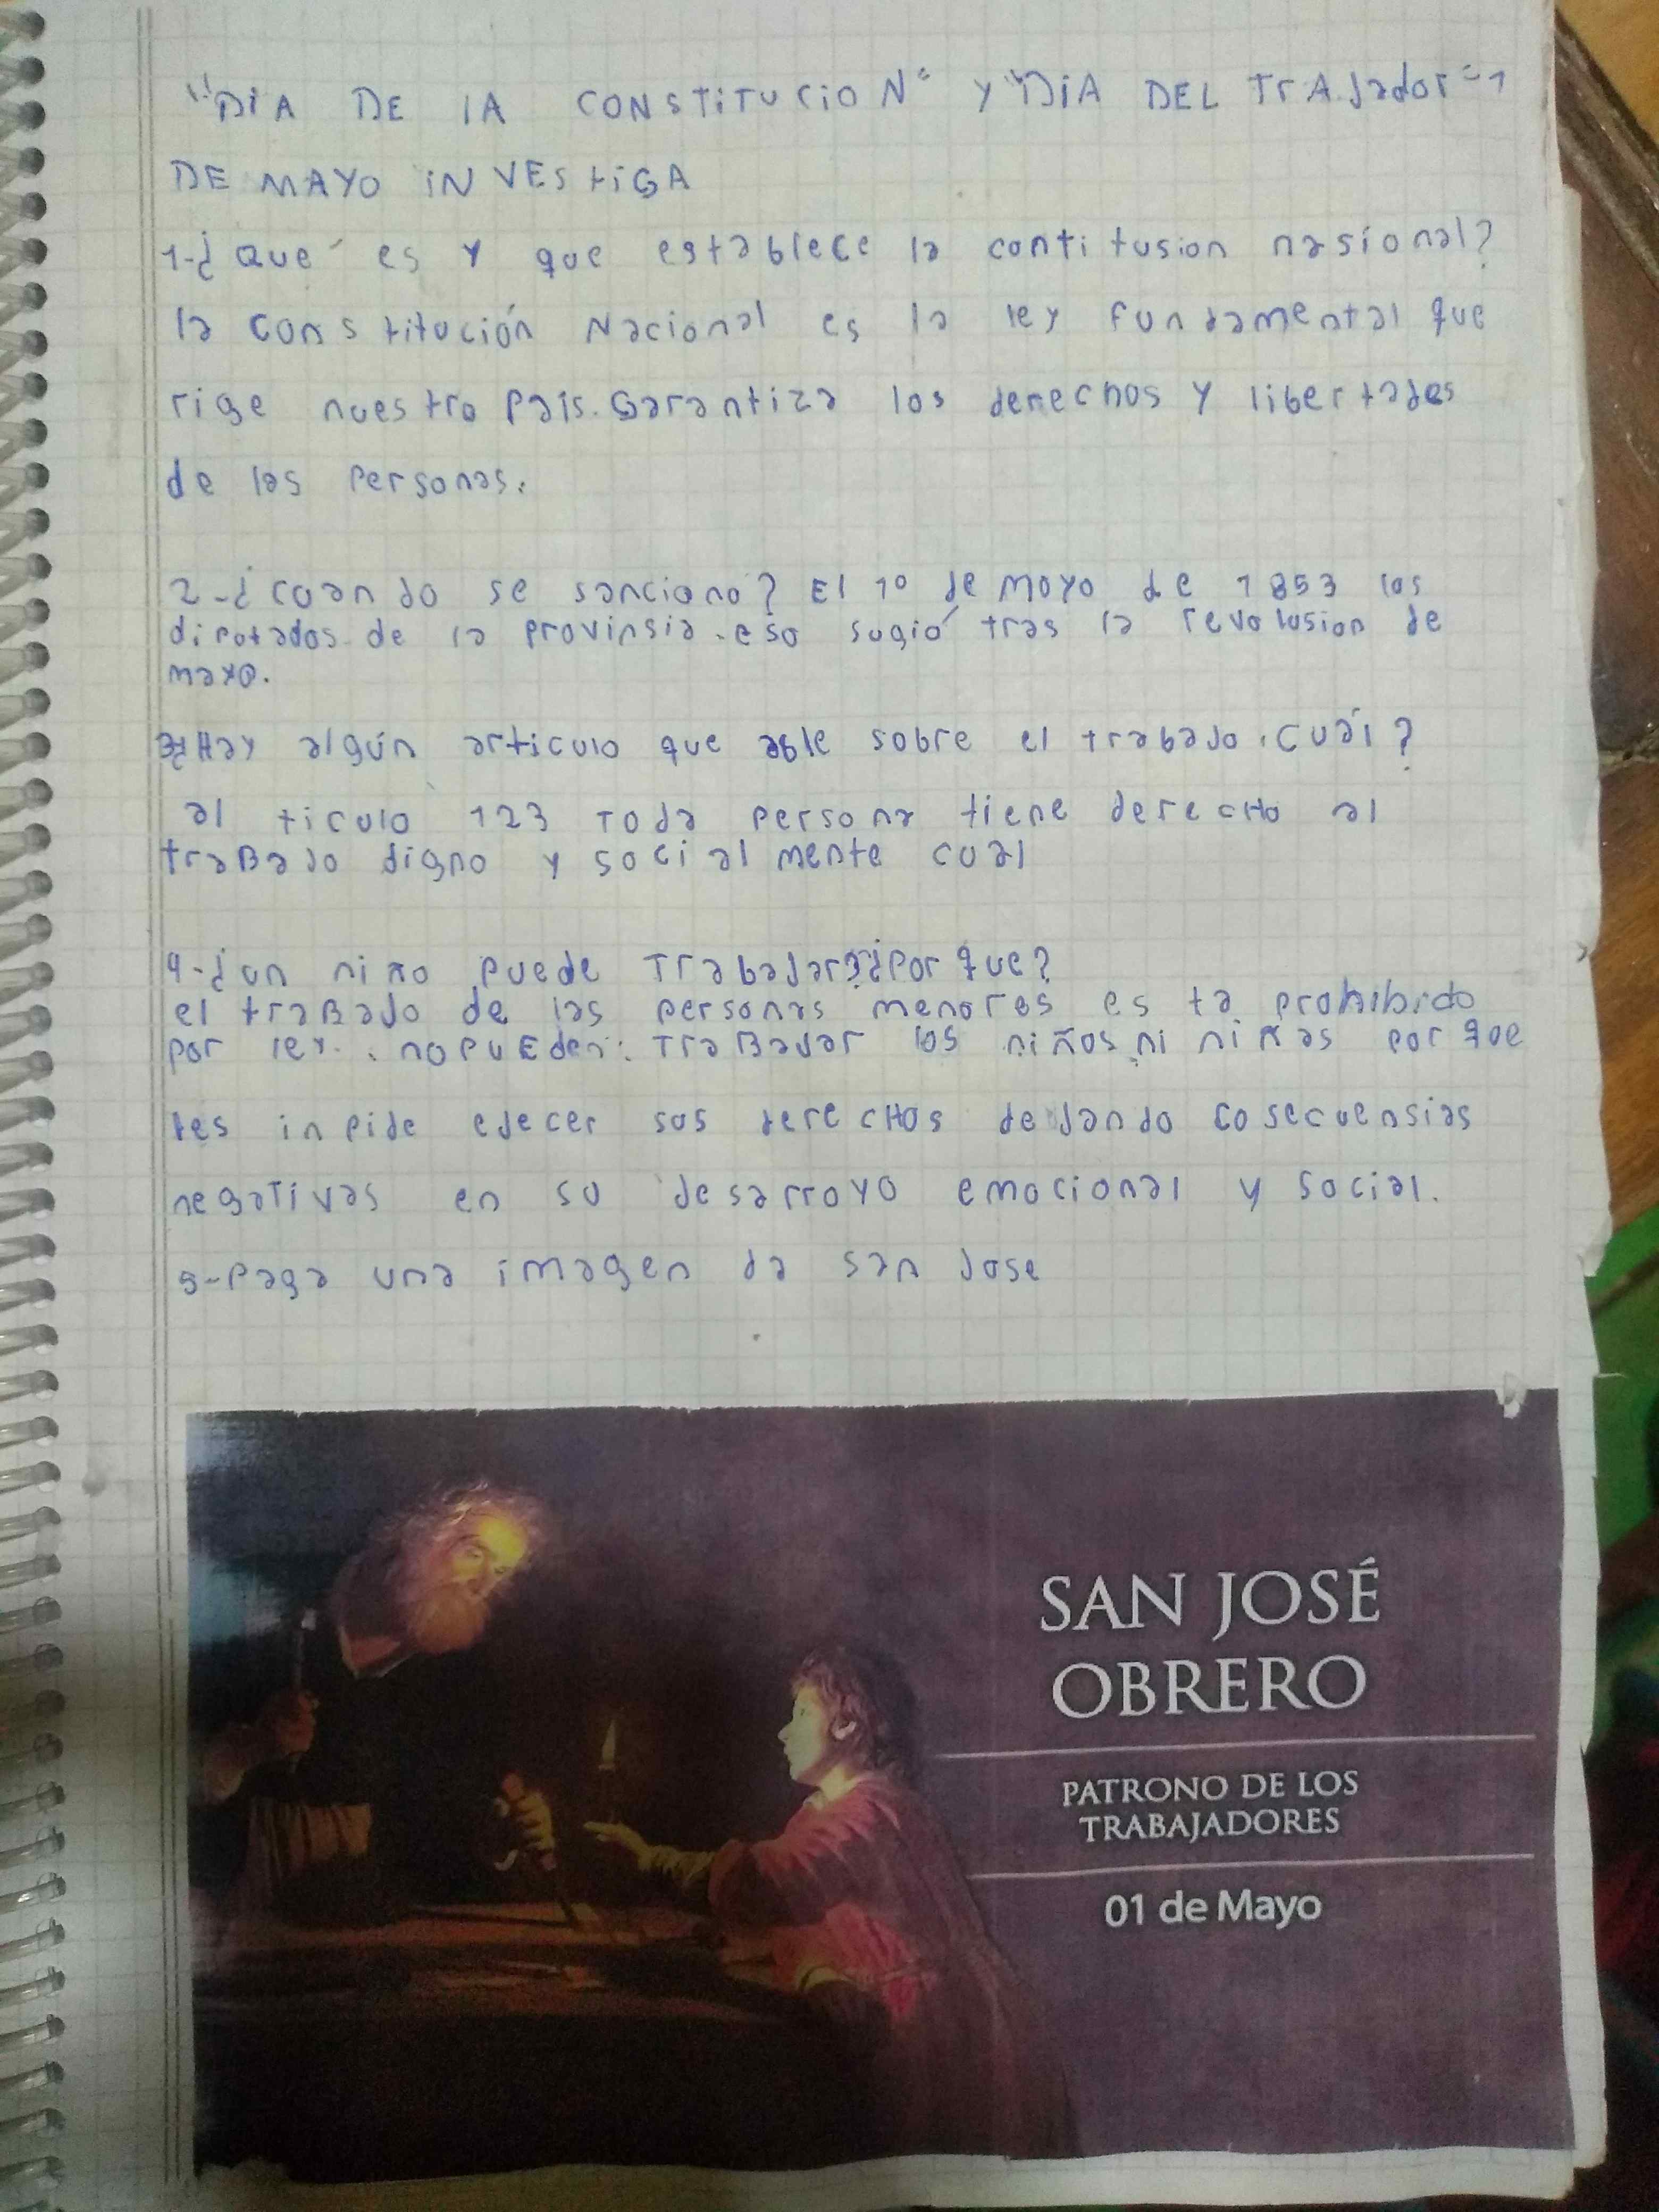 "DiA DE lA CONSTITUCIO N" Y "DiA DEL TrAJador" 1
DE MAYO iNVEStiGA
1-¿Que es y que establece la contitusion nasíonal?
la constitución Nacional es la ley fundamental que
rige nuestro País. Garantiza los derechos y libertades
de las personas.
2-¿cuando se sanciono? El 1º de mayo de 1853 los
diputados de la provinsia. eso sugió tras la revolusion de
mayo.
3¿Hay algún articulo que able sobre el trabajo. Cuál?
al ticulo 123 Toda persona tiene derecho al
traBajo digno y social mente cual
4-¿un niño puede Trabajar?¿Por que?
el traBajo de las personas menores es ta prohibido
por ley. no pueden TraBajar los niños ni niñas por que
les inpide ejecer sus derechos dejando cosecuensias
negativas en su desarroyo emocional y social.
5-Paga una imagen da san Jose
SAN JOSÉ
OBRERO
PATRONO DE LOS
TRABAJADORES
01 de Mayo